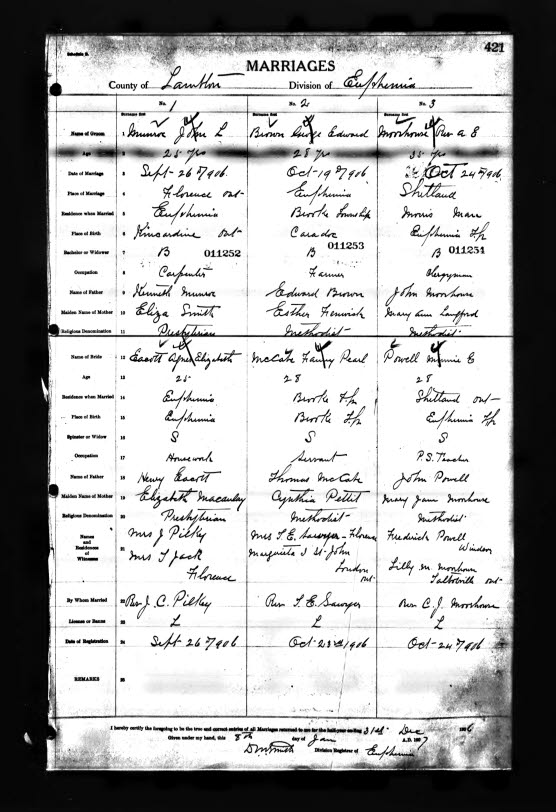 Schedule B.
421
MARRIAGES
County of Lambton Division of Euphemia
No. 1 No. 2 No. 3
Surname first Surname first Surname first
Name of Groom 1 Munro John L Brown George Edward Moorhouse Rev A E
Age 2 25 yrs 28 yrs 35 yrs
Date of Marriage 3 Sept 26th/1906. Oct 19th/1906. Oct 24th/1906.
Place of Marriage 4 Florence Ont Euphemia Shetland
Residence when Married 5 Euphemia Brooke Township Morris Man
Place of Birth 6 Kincardine Ont Caradoc Euphemia Tp
Bachelor or Widower 7 B 011252 B 011253 B 011254
Occupation 8 Carpenter Farmer Clergyman
Name of Father 9 Kenneth Munro Edward Brown John Moorhouse
Maiden Name of Mother 10 Eliza Smith Esther Fenwick Mary Ann Langford
Religious Denomination 11 Presbyterian Methodist Methodist
Name of Bride 12 Escott Agnes Elizabeth McCabe Fanny Pearl Powell Minnie E
Age 13 25 28 28
Residence when Married 14 Euphemia Brooke Tp Shetland Ont
Place of Birth 15 Euphemia Brooke Tp Euphemia Tp
Spinster or Widow 16 S S S
Occupation 17 Housework Servant P.S. Teacher
Name of Father 18 Henry Escott Thomas McCabe John Powell
Maiden Name of Mother 19 Elizabeth Macauley Cynthia Pettit Mary Jane Moorhouse
Religious Denomination 20 Presbyterian Methodist Methodist
Names and Residences of Witnesses 21 Mrs J Pilkey Mrs T. E. Sawyer - Florence Fredrick Powell
Windsor
Mrs T Jack Marguerite I St. John Lilly M. Moorhouse
Florence London Ont Talbotville Ont
By Whom Married 22 Rev J. C. Pilkey Rev. T. E. Sawyer Rev. C. J. Moorhouse
License or Banns 23 L L L
Date of Registration 24 Sept 26th/1906 Oct 23rd 1906 Oct 24th/1906
REMARKS 25
I hereby certify the foregoing to be the true and correct entries of all Marriages returned to me for the half-year ending 31st Dec 1906
Given under my hand, this 8th day of Jan A.D. 1907
D M Smith Division Registrar of Euphemia